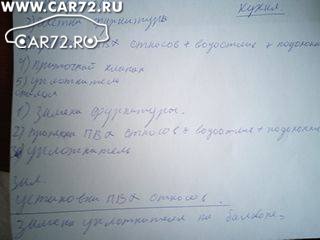 CAR72.RU
CAR72.RU
Кухня.
фурнитура
ПВХ откосов + водоотлив + подоконник
4) приточной клапан
5) уплотнитель
1) Замена фурнитуры.
2) ПВХ откосов + водоотлив + подоконник
3) уплотнитель
Зал.
установка ПВХ откосов.
Замена уплотнителя на балконе.